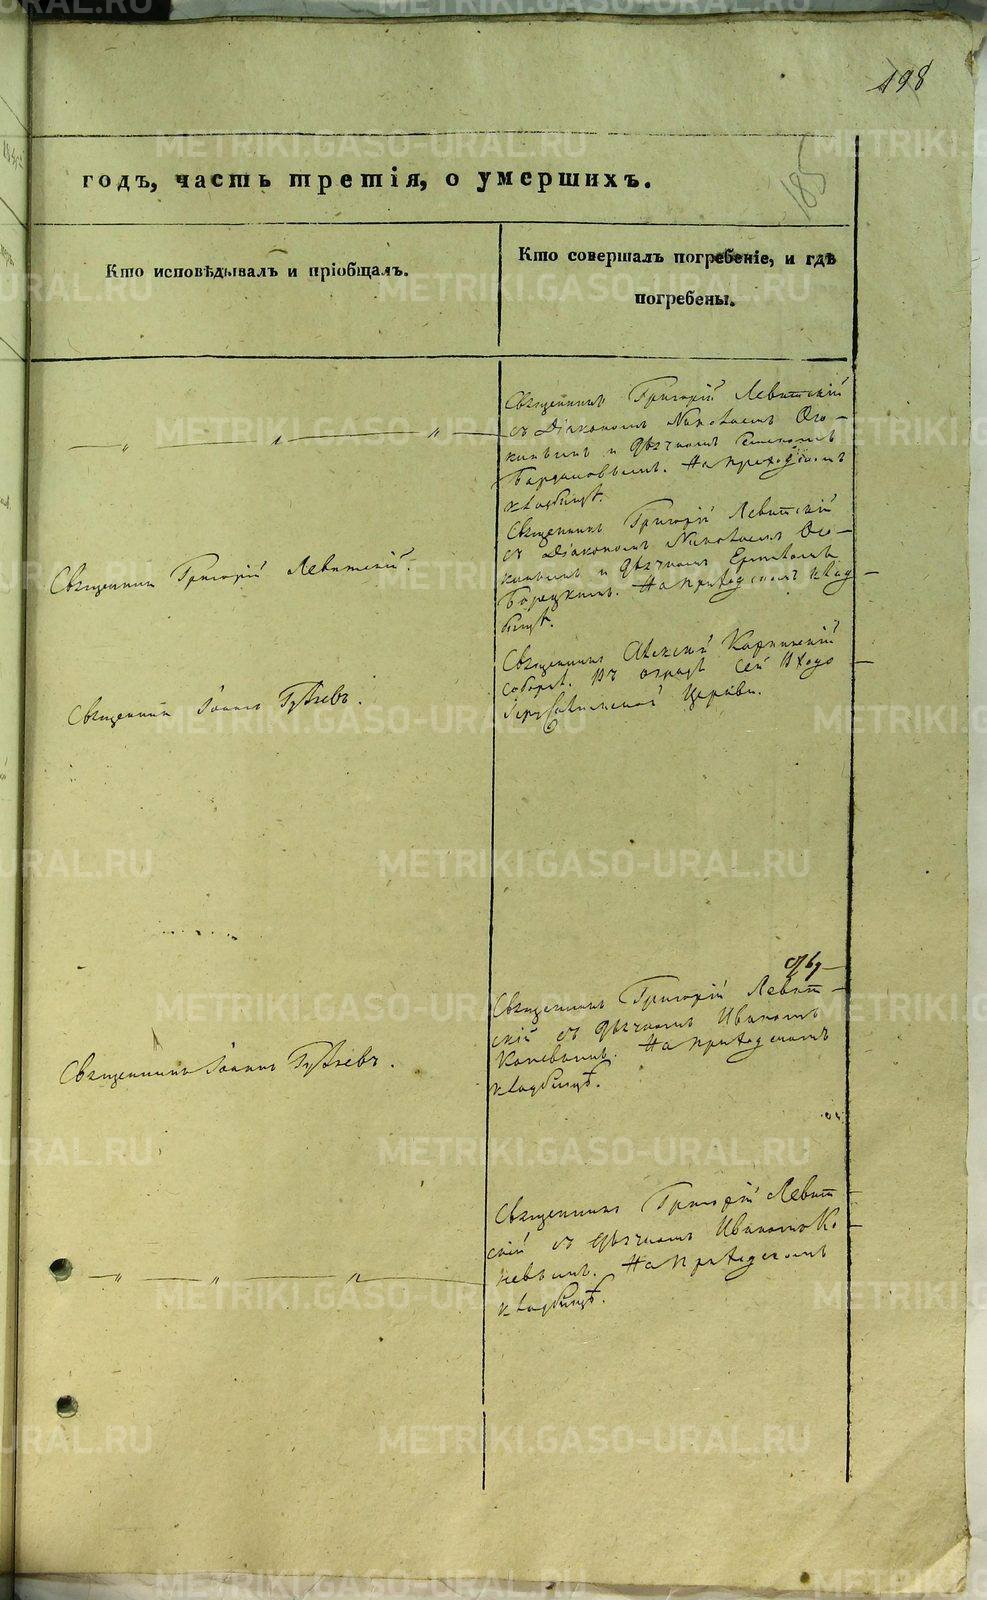 198
185
годъ, часть третія, о умершихъ.
Кто исповѣдывалъ и пріобщалъ.
Кто совершалъ погребеніе, и гдѣ
погребены.
Священникъ Григорій Левитскій
съ Діакономъ Николаемъ
и Дьячкомъ
На приходскомъ
кладбищѣ.
Священникъ Григорій Левитскій.
Священникъ Григорій Левитскій
съ Діакономъ Николаемъ
и Дьячкомъ
На приходскомъ клад
бищѣ.
Священникъ Іоаннъ Гуляевъ.
Священникъ Алексій Карпинскій
соборнѣ. Въ оградѣ сей Входо
Іерусалимской Церкви.
Священникъ Іоаннъ Гуляевъ.
Священникъ Григорій Левит-
скій съ Дьячкомъ Иваномъ
На приходскомъ
кладбищѣ.
Священникъ Григорій Левит-
скій съ Дьячкомъ Иваномъ
На приходскомъ
кладбищѣ.
METRIKI.GASO-URAL.RU